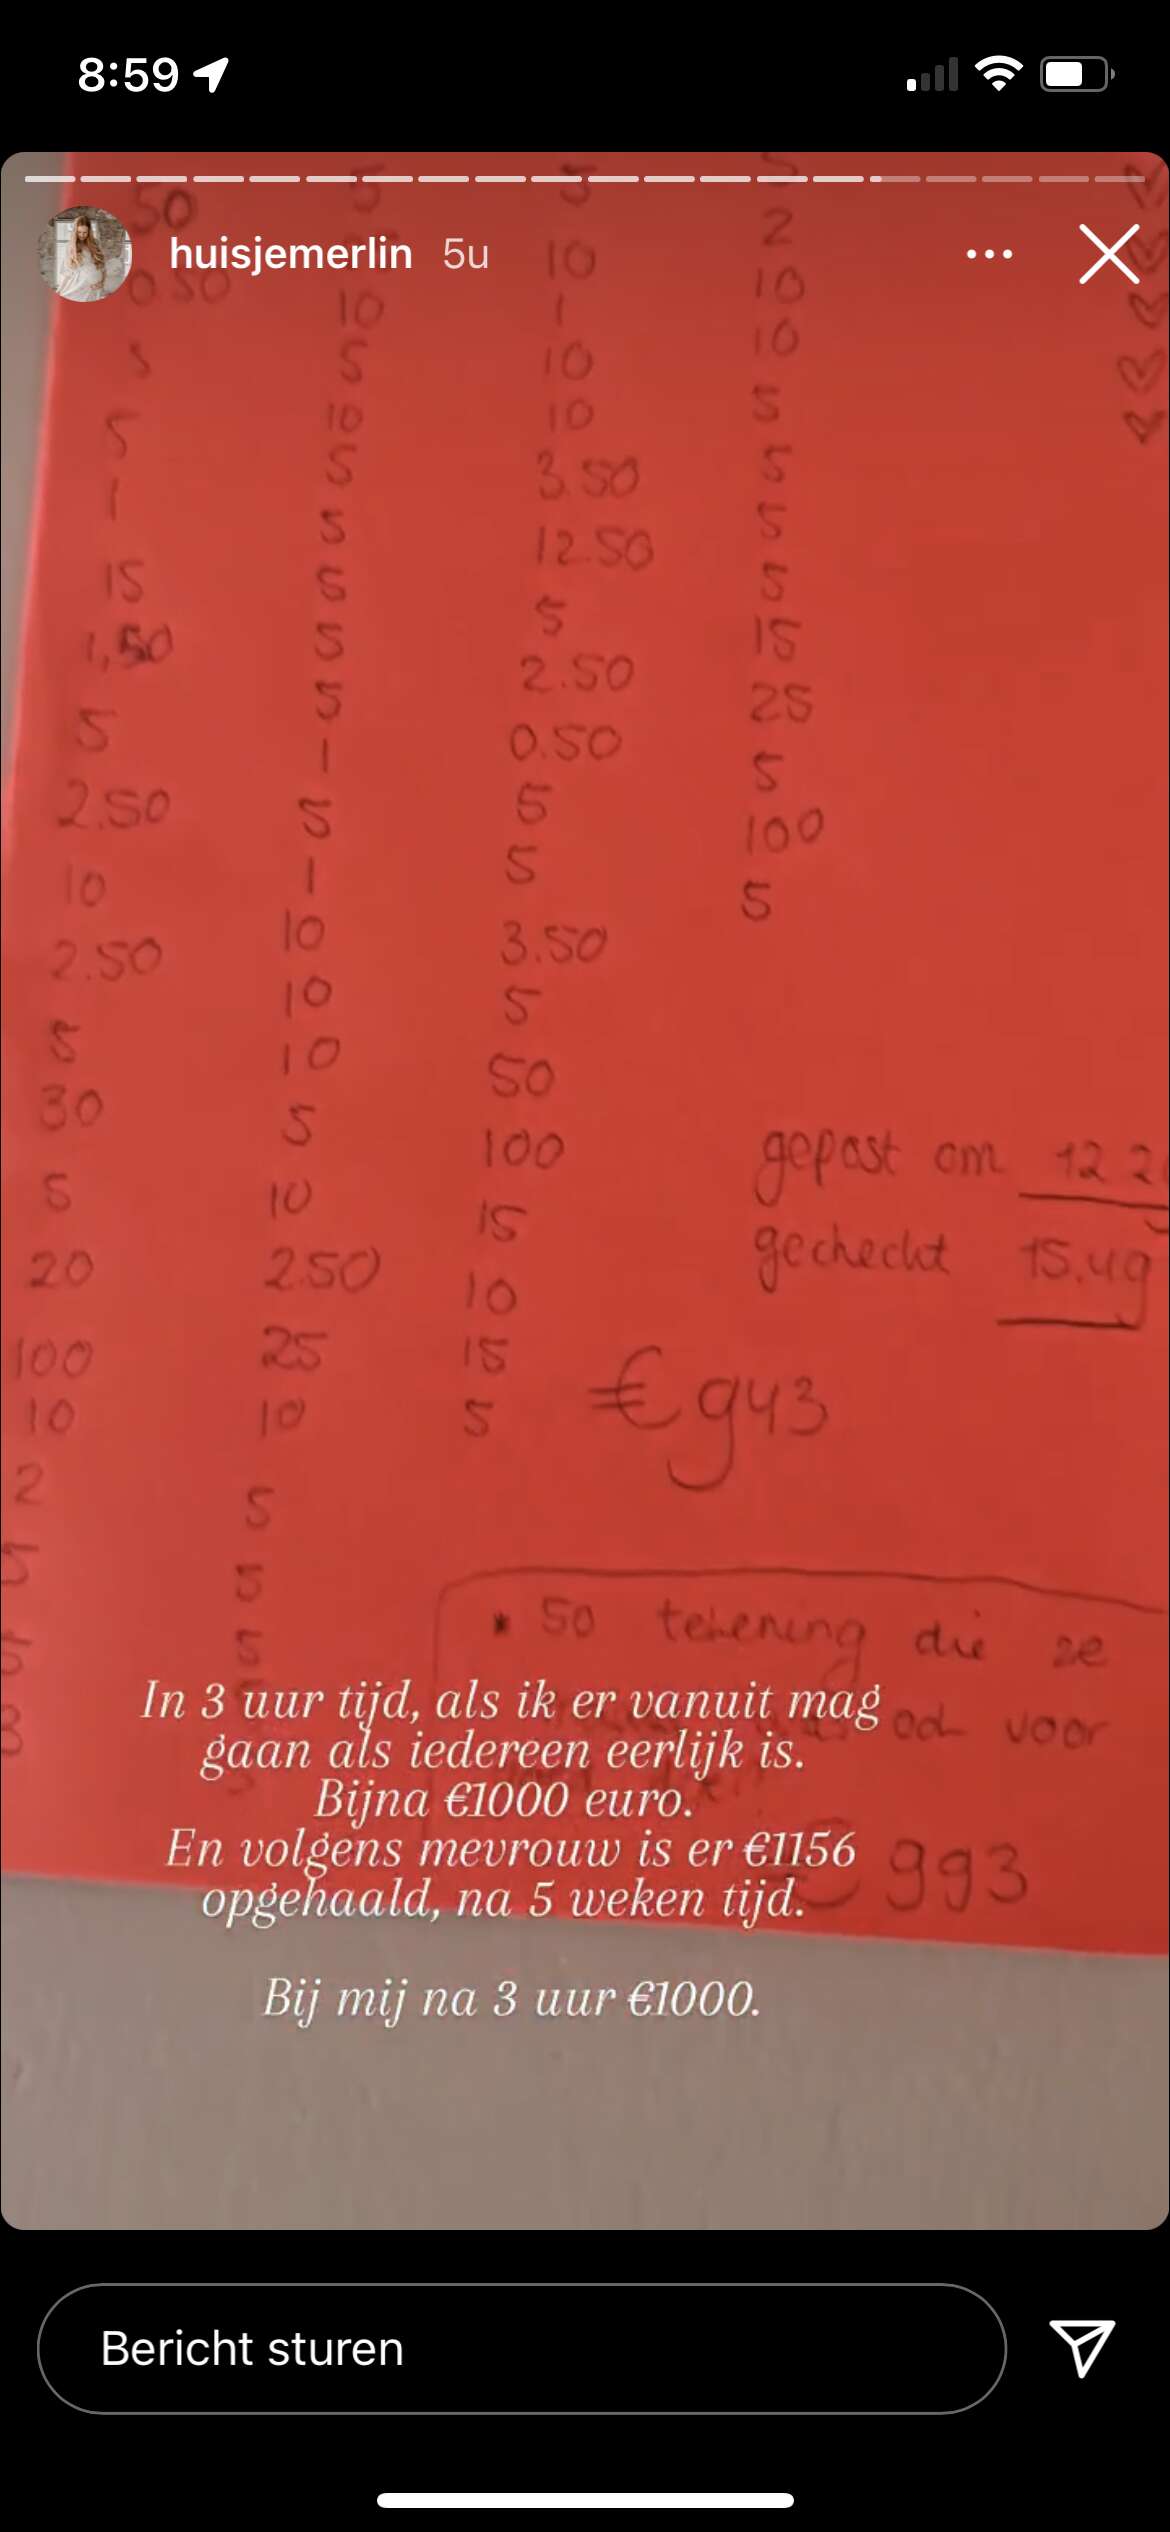 8:59
huisjemerlin 5u
50 5 5 5
0.50 10 2
10 1 10
5 5 10 10
5 10 10 5
1 5 3.50 5
5 12.50 5
15 5 5 5
1,50 5 2.50 15
5 5 0.50 25
1 5 5
2.50 5 5 100
10 1 3.50 5
2.50 10 5
5 10 50
30 10 100
5 5 15
20 10 10
100 2.50 15
10 25 5
2 10
5 5
5 5
8 5
gepost om 12 2
gecheckt 15.49
€943
50 tekening die ze
voor
€993
In 3 uur tijd, als ik er vanuit mag
gaan als iedereen eerlijk is.
Bijna €1000 euro.
En volgens mevrouw is er €1156
opgehaald, na 5 weken tijd.
Bij mij na 3 uur €1000.
Bericht sturen